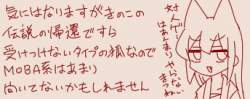 気にはなりますがきのこの
伝説の帰還ですら
受けつけないタイプの狐なので
MOBA系はあまり
向いてないかもしれません
対人ゲー
はあんまりやらない
きつね